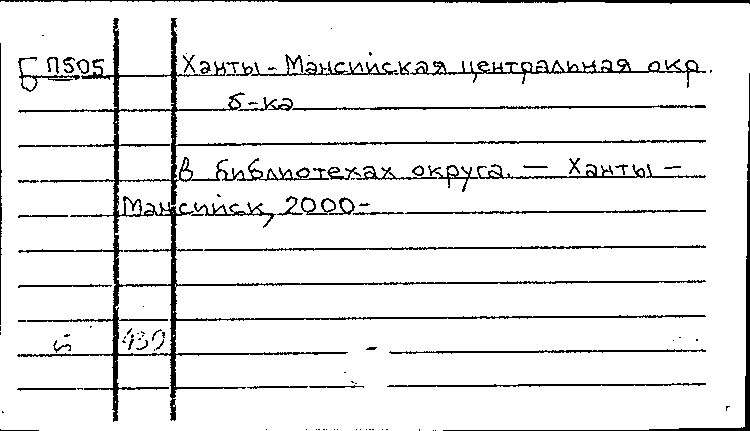 Б П505 Ханты-Мансийская центральная окр.
б-ка
В библиотеках округа. — Ханты-
Мансийск, 2000-
430